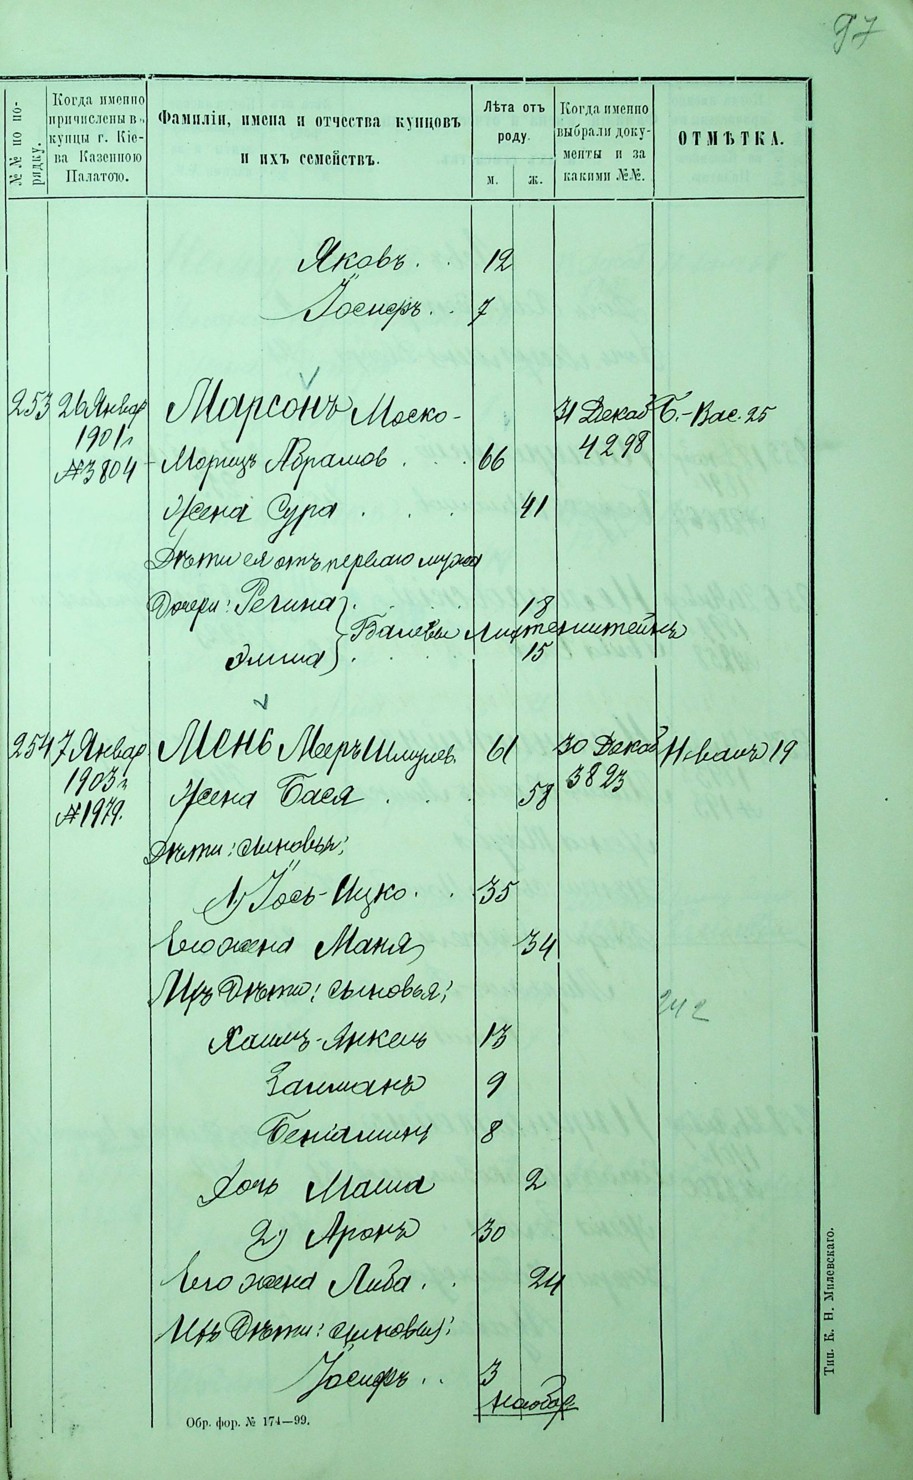 97
№№ по по-
рядку.
Когда именно
причислены въ
купцы г. Кіе-
ва Казенною
Палатою.
Фамиліи, имена и отчества купцовъ
и ихъ семействъ.
Лѣта отъ
роду.
м. ж.
Когда именно
выбрали доку-
менты и за
какими №№.
ОТМѢТКА.
Яковъ . . 12
Іосифъ . . 7
253 26 Январ Марсонъ Моско- 31 Декаб Б.-Вас. 25
1901 г. 4298
№3804 Морицъ Абрамов . . . 66
Жена Сура . . . 41
Дѣти ея отъ перваго мужа
Дочери: Регина . . . 18
Лихтенштейнъ
Эмма . . . 15
254 7 Январ Мень Мееръ Шмулев. 61 30 Декаб Н-Валъ 19
1903 г. 3823
№1979. Жена Бася . . . 58
Дѣти: сыновья:
1) Іось-Ицко . . 35
Его жена Маня 34
Ихъ Дѣти: сыновья:
242
Хаимъ-Янкель 13
Залманъ 9
Беніаминъ 8
Дочь Маша 2
2) Аронъ 30
Его жена Либа . . 24
Ихъ Дѣти: сыновья:
Іосифъ . . 3
на обор
Обр. фор. № 174—99.
Тип. К. Н. Милевскаго.